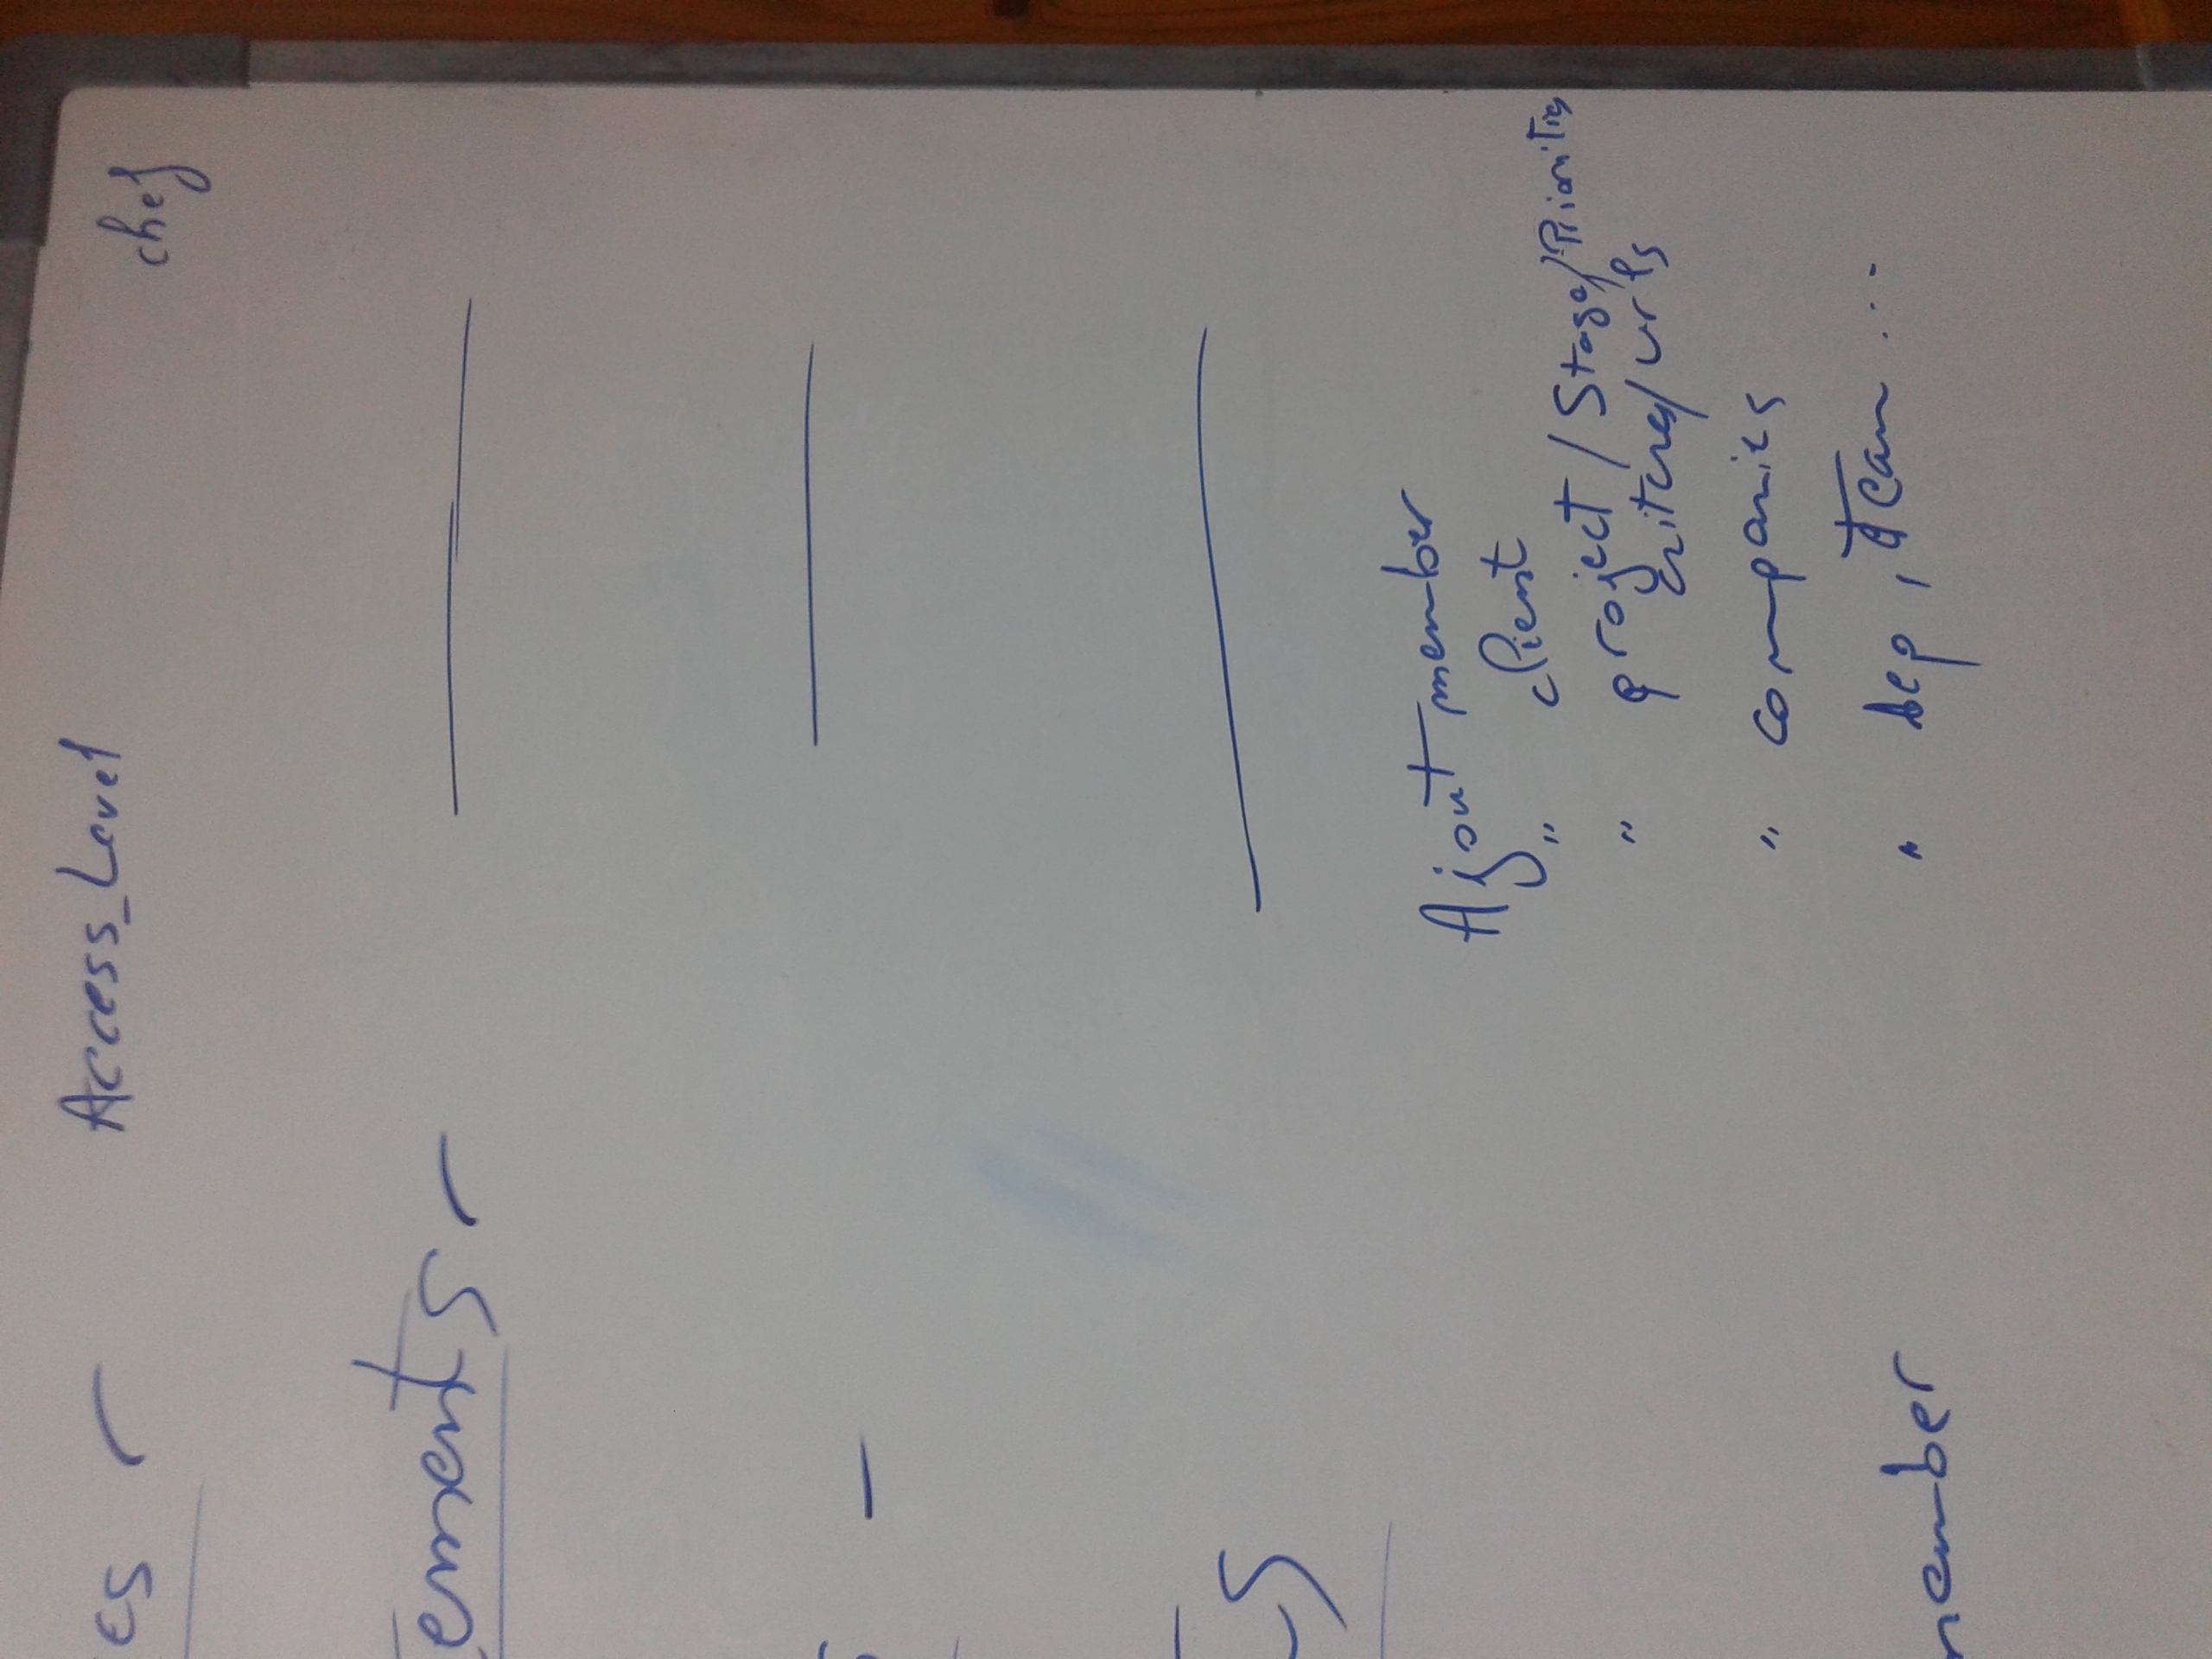 es - Access_Level chef
ements -
s -
s
Ajout member
" client
" project / Stage / Priorities
criteres / urls
" companies
" dep, team ...
member